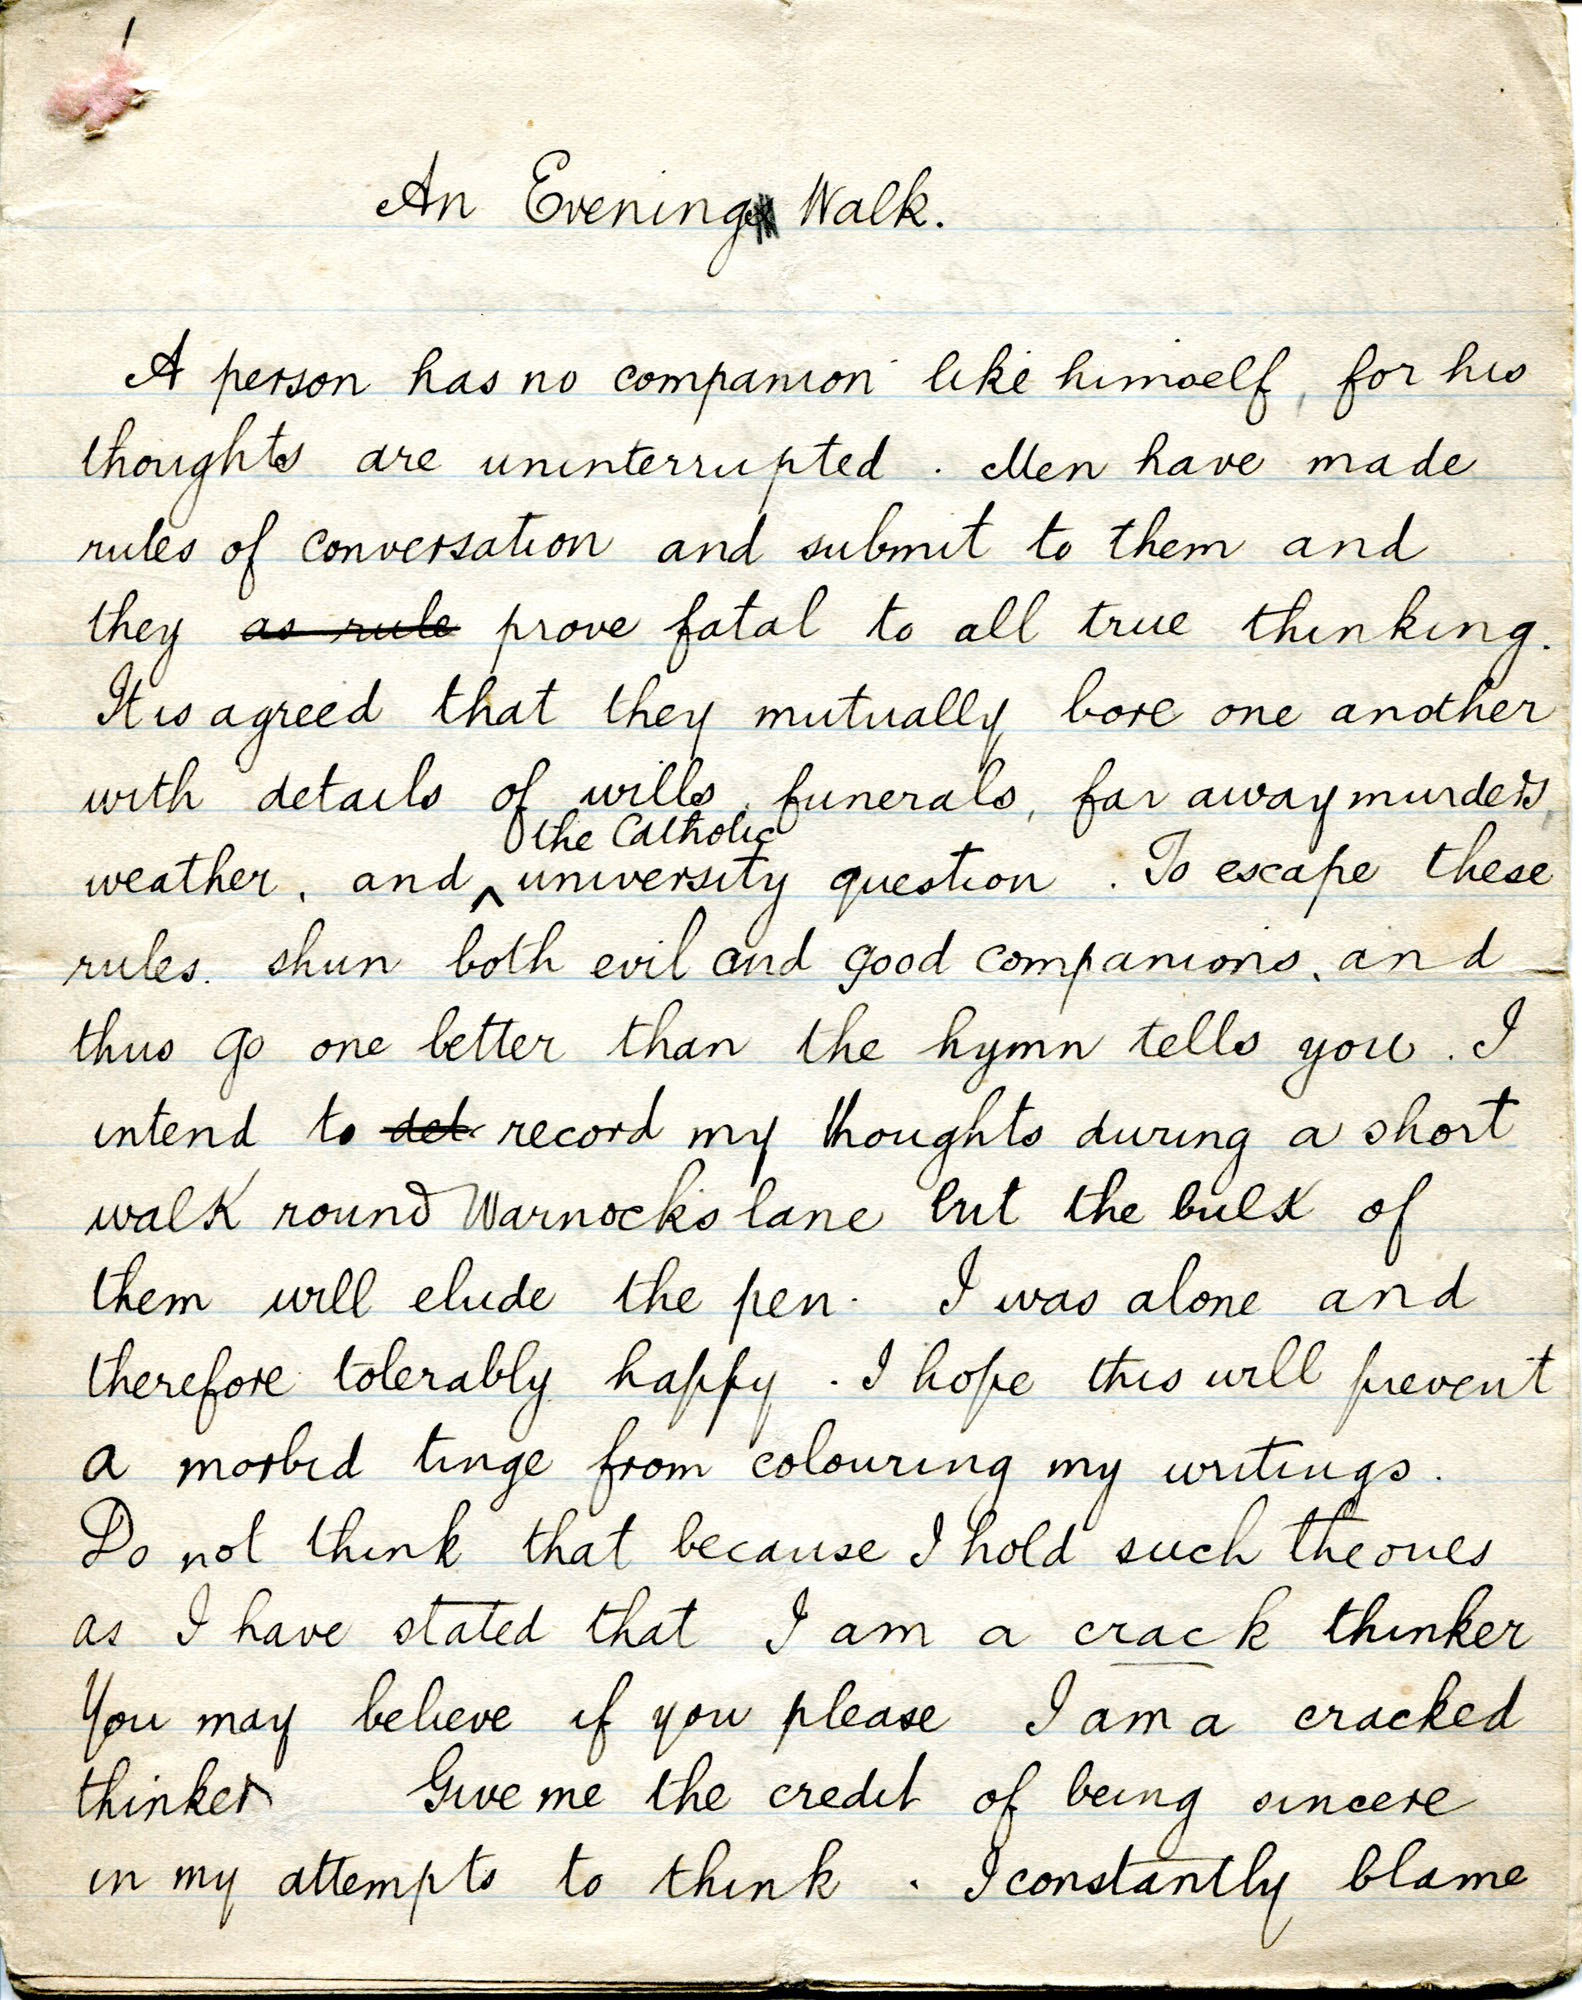 An Evening Walk.
A person has no companion like himself, for his
thoughts are uninterrupted. Men have made
rules of conversation and submit to them and
they as rule prove fatal to all true thinking.
It is agreed that they mutually bore one another
with details of wills, funerals, far away murders,
the Catholic
weather, and ^ university question. To escape these
rules. shun both evil and good companions, and
thus go one better than the hymn tells you. I
intend to det record my thoughts during a short
walk round Warnocks lane but the bulk of
them will elude the pen. I was alone and
therefore tolerably happy. I hope this will prevent
a morbid tinge from colouring my writings.
Do not think that because I hold such theories
as I have stated that I am a crack thinker
You may believe if you please I am a cracked
thinker Give me the credit of being sincere
in my attempts to think. I constantly blame